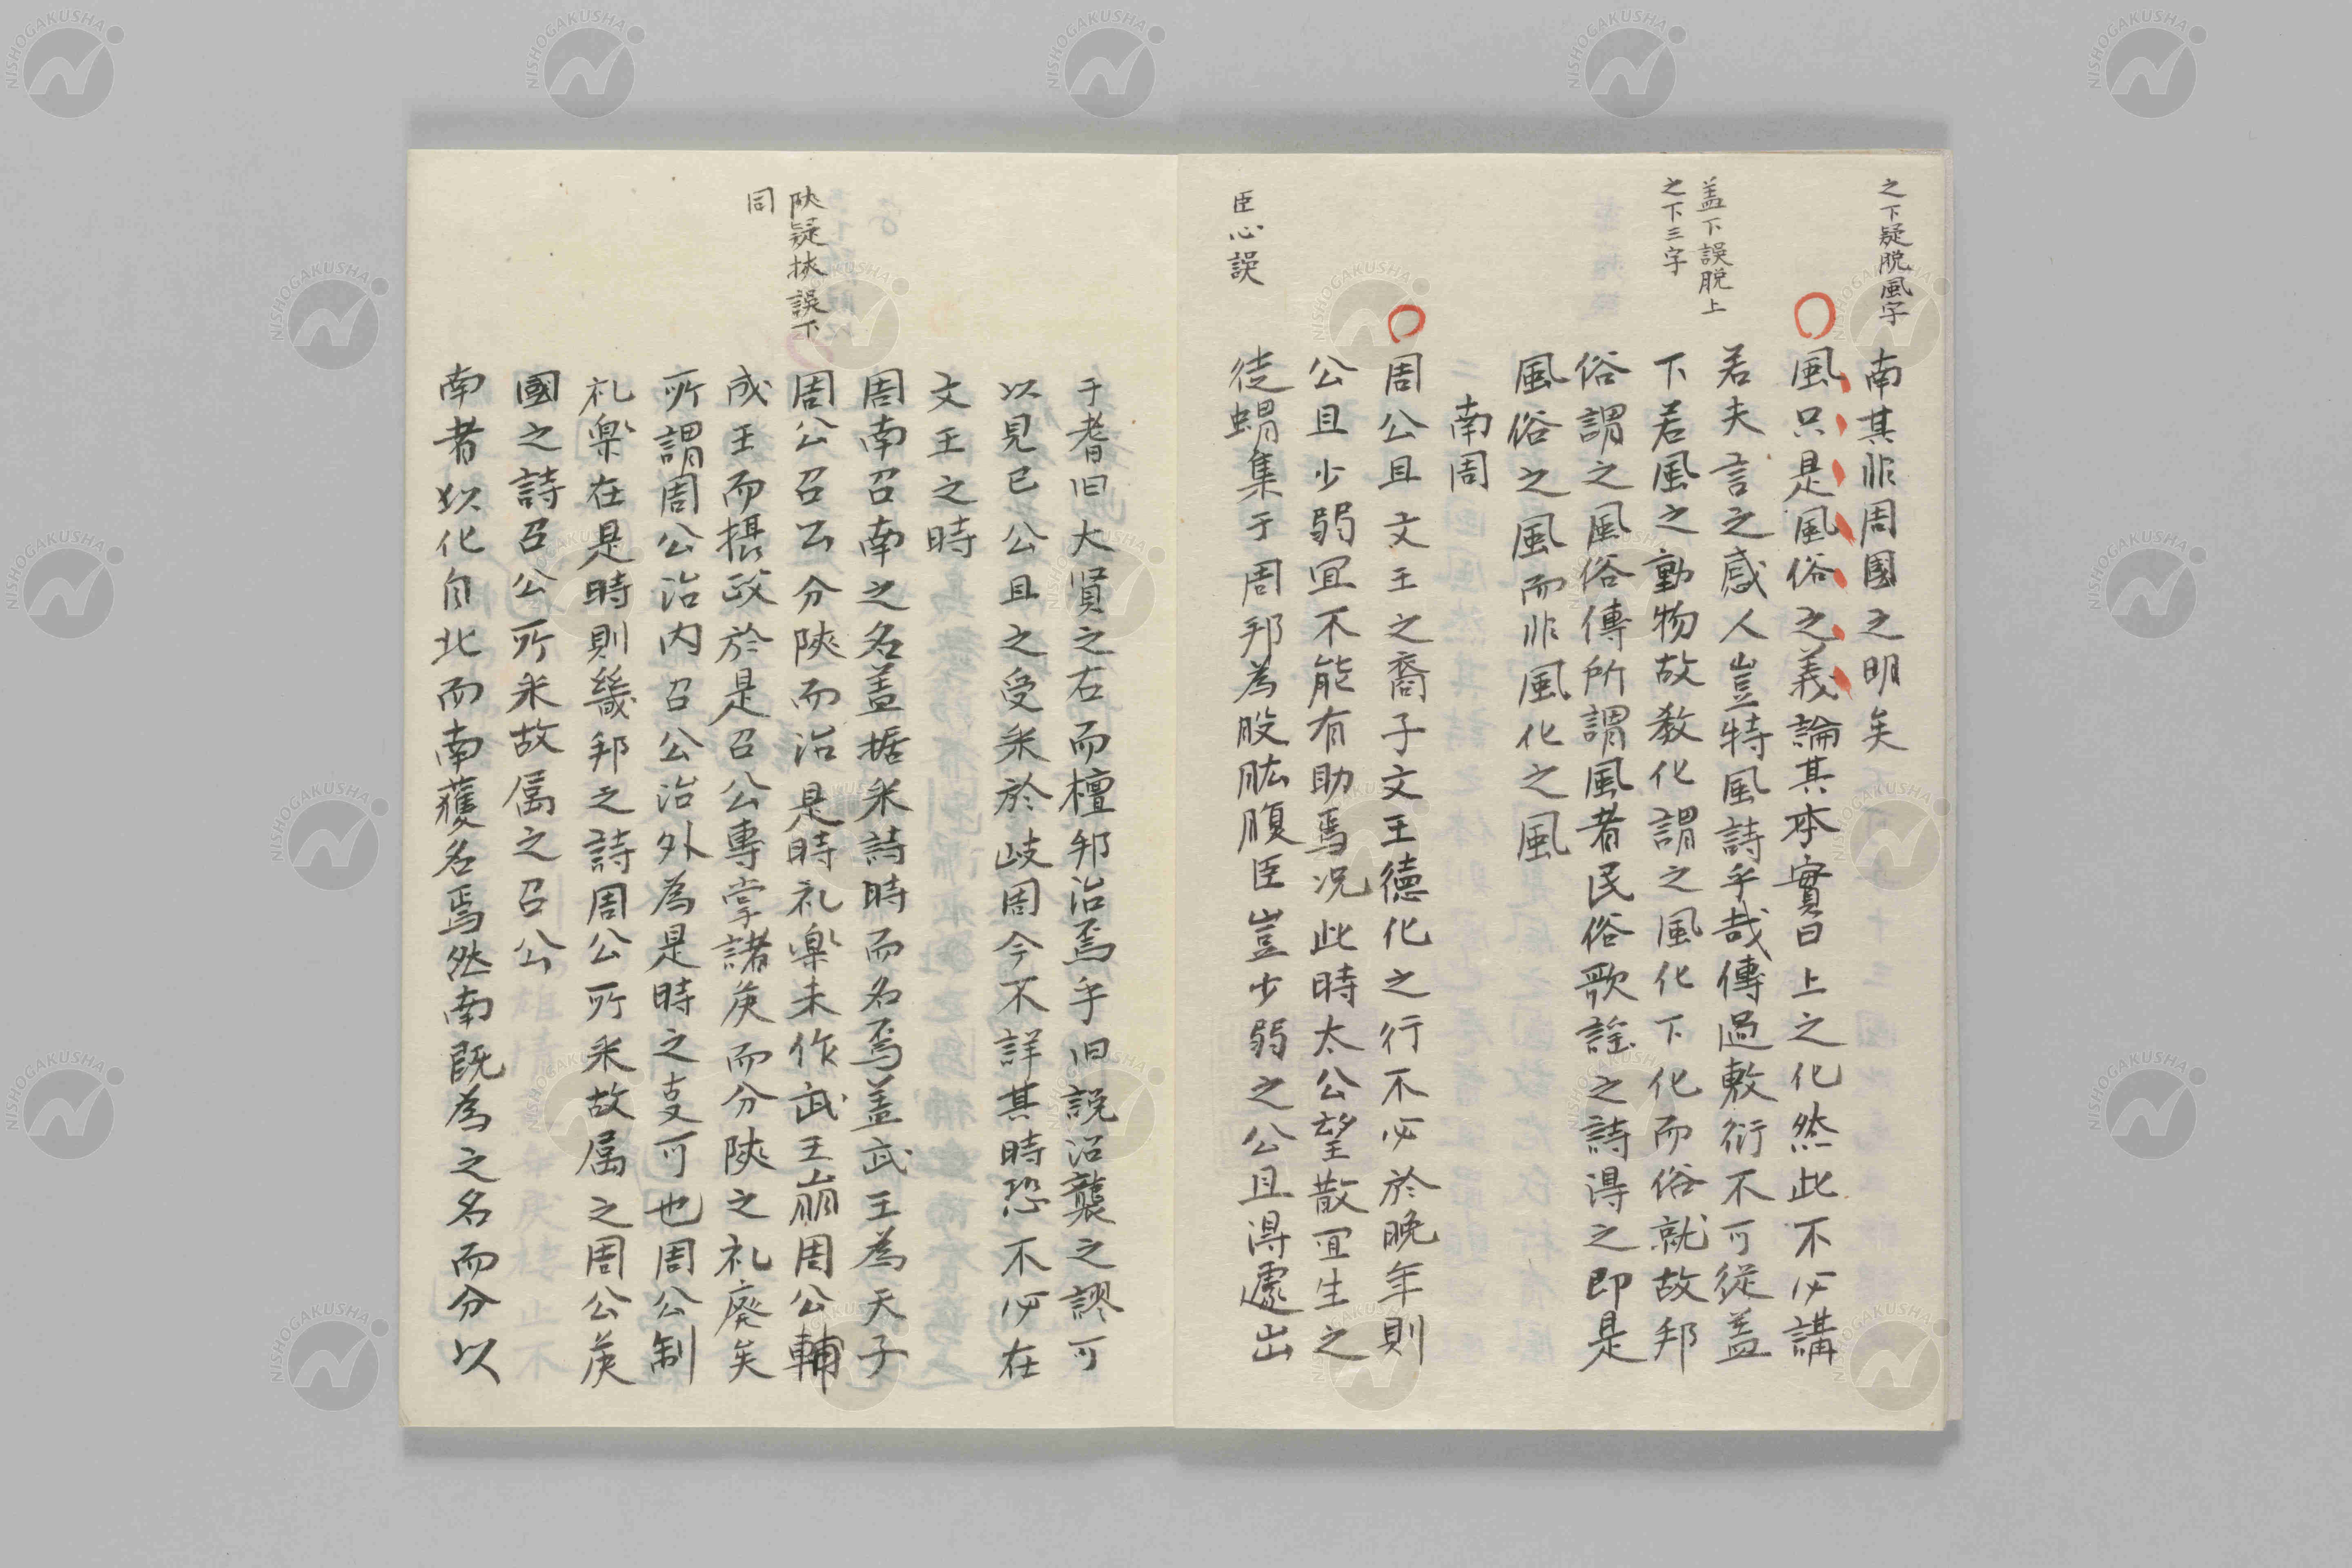 之下疑脱風字
南其非周国之明矣
風只是風俗之義論其本實曰上之化然此不必講
若夫言之感人豈特風詩乎哉傳過敷衍不可從盖
盖下誤脱上
之下三字
下若風之動物故教化謂之風化下化而俗就故邦
俗謂之風俗傳所謂風者民俗歌謠之詩得之即是
風俗之風而非風化之風
南周
周公且文王之裔子文王德化之行不必於晩年則
公且少弱宜不能有助焉况此時太公望散宜生之
徒蝟集于周邦為股肱腹臣豈少弱之公且得處出
臣心誤
于耆旧大賢之右而檀邦治焉乎旧説沿襲之謬可
以見已公且之受采於岐周今不詳其時恐不必在
文王之時
周南召南之名盖据采詩時而名焉盖武王為天子
周公召公分陝而治是時礼楽未作武王崩周公輔
陝疑挾誤下
同
成王而攝政於是召公專掌諸侯而分陝之礼廢矣
所謂周公治内召公治外為是時之支可也周公制
礼楽在是時則畿邦之詩周公所采故属之周公矦
國之詩召公所采故属之召公
南者以化自北而南獲名焉然南既為之名而分以